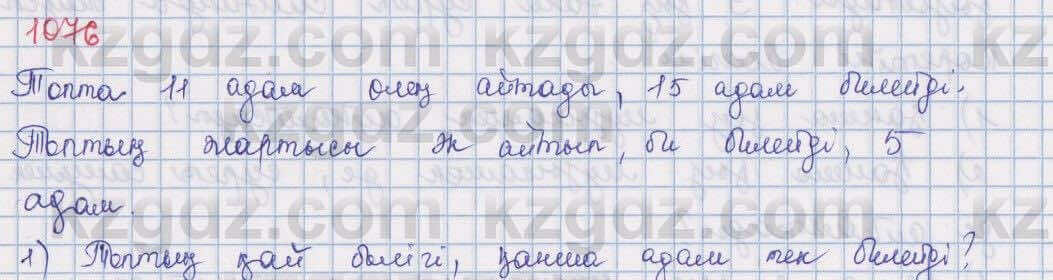 1076
kzgdz.com kzgdz.com kz
Топта 11 адам өлең айтады, 15 адам билейді.
kzgdz.com kzgdz.com
Топтың жартысы ән айтып, би билейді, 5
адам.
kzgdz.com kzgdz.com kz
1) Топтың қай бөлігі, қанша адам тек билейді?